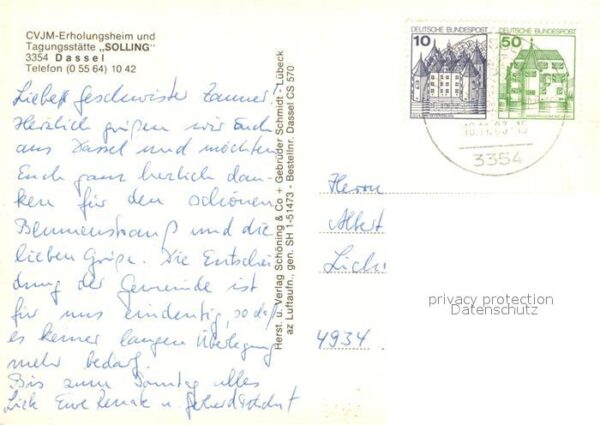 CVJM-Erholungsheim und
Tagungsstätte „SOLLING"
3354 Dassel
Telefon (0 55 64) 10 42
Liebe Geschwister
Herzlich grüßen wir Euch
aus Dassel und möchten
Euch ganz herzlich dan-
ken für den schönen
Blumenstrauß und die
lieben Grüße. Die Entschei-
dung der Gemeinde ist
für uns eindeutig, so daß
es keiner langen Überlegung
mehr bedarf.
Bis zum Sonntag alles
Eure Renate u.
Herst. u. Verlag Schöning & Co + Gebrüder Schmidt · Lübeck
az Luftaufn., gen. SH 1-51473 - Bestellnr. Dassel CS 570
10 DEUTSCHE BUNDESPOST
50 DEUTSCHE BUNDESPOST
3354
Herrn
Albert
4934
privacy protection
Datenschutz